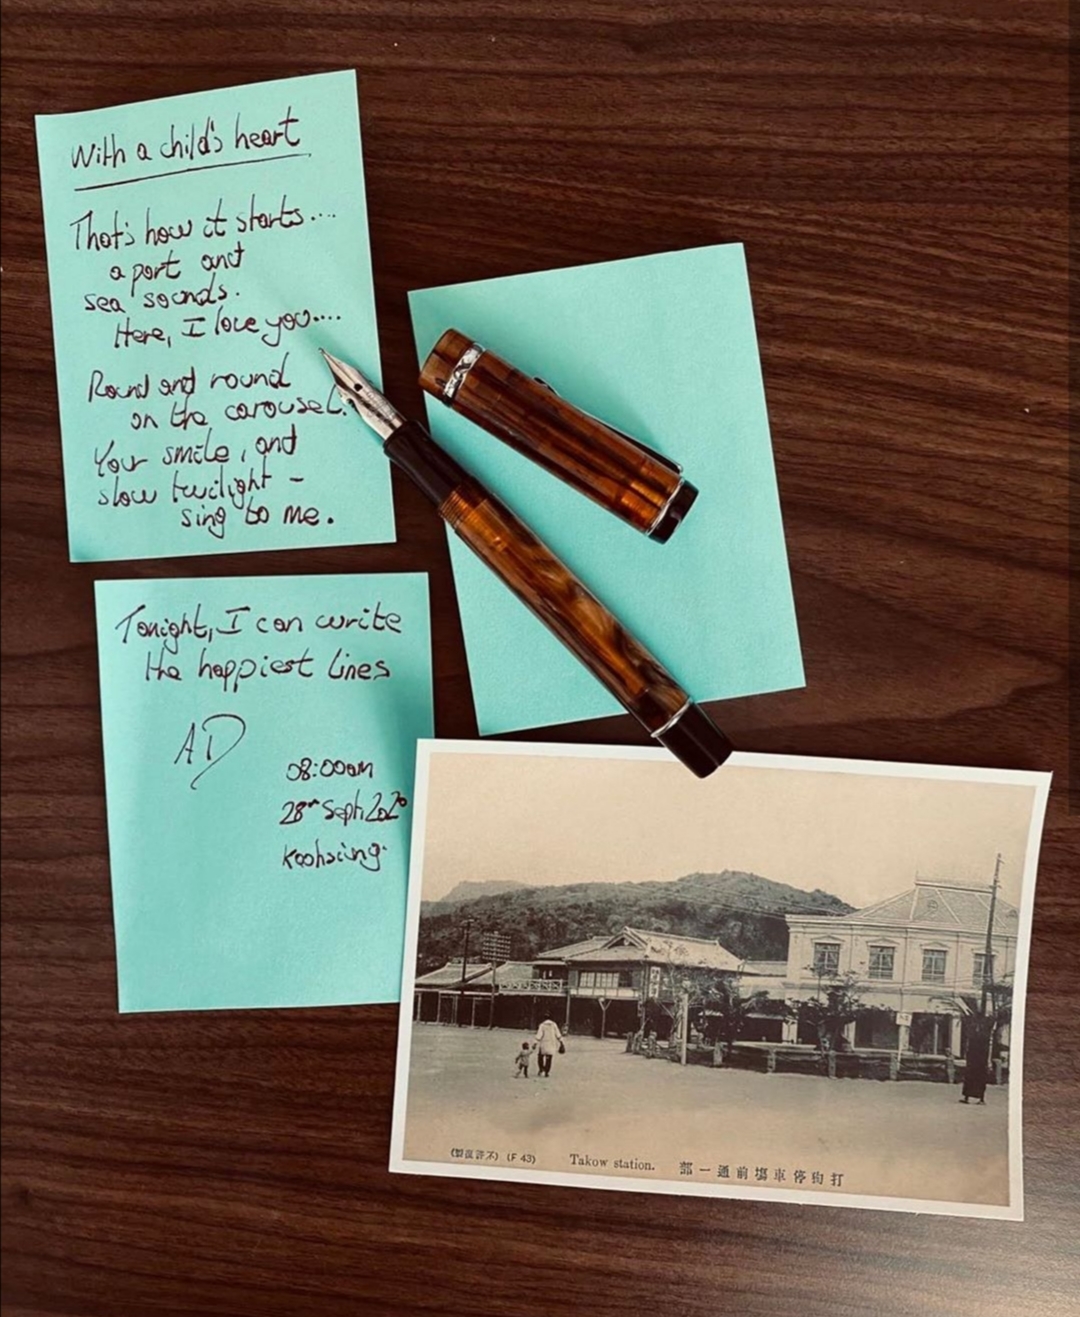 With a child's heart
That's how it starts....
a port and
sea sounds.
Here, I love you....
Round and round
on the carousel.
Your smile, and
slow twilight -
sing to me.
Tonight, I can write
the happiest lines
AD
08:00am
28th Sept. 2020
Kaohsiung.
(製複許不) (F 43) Takow station. 部一通前場車停狗打